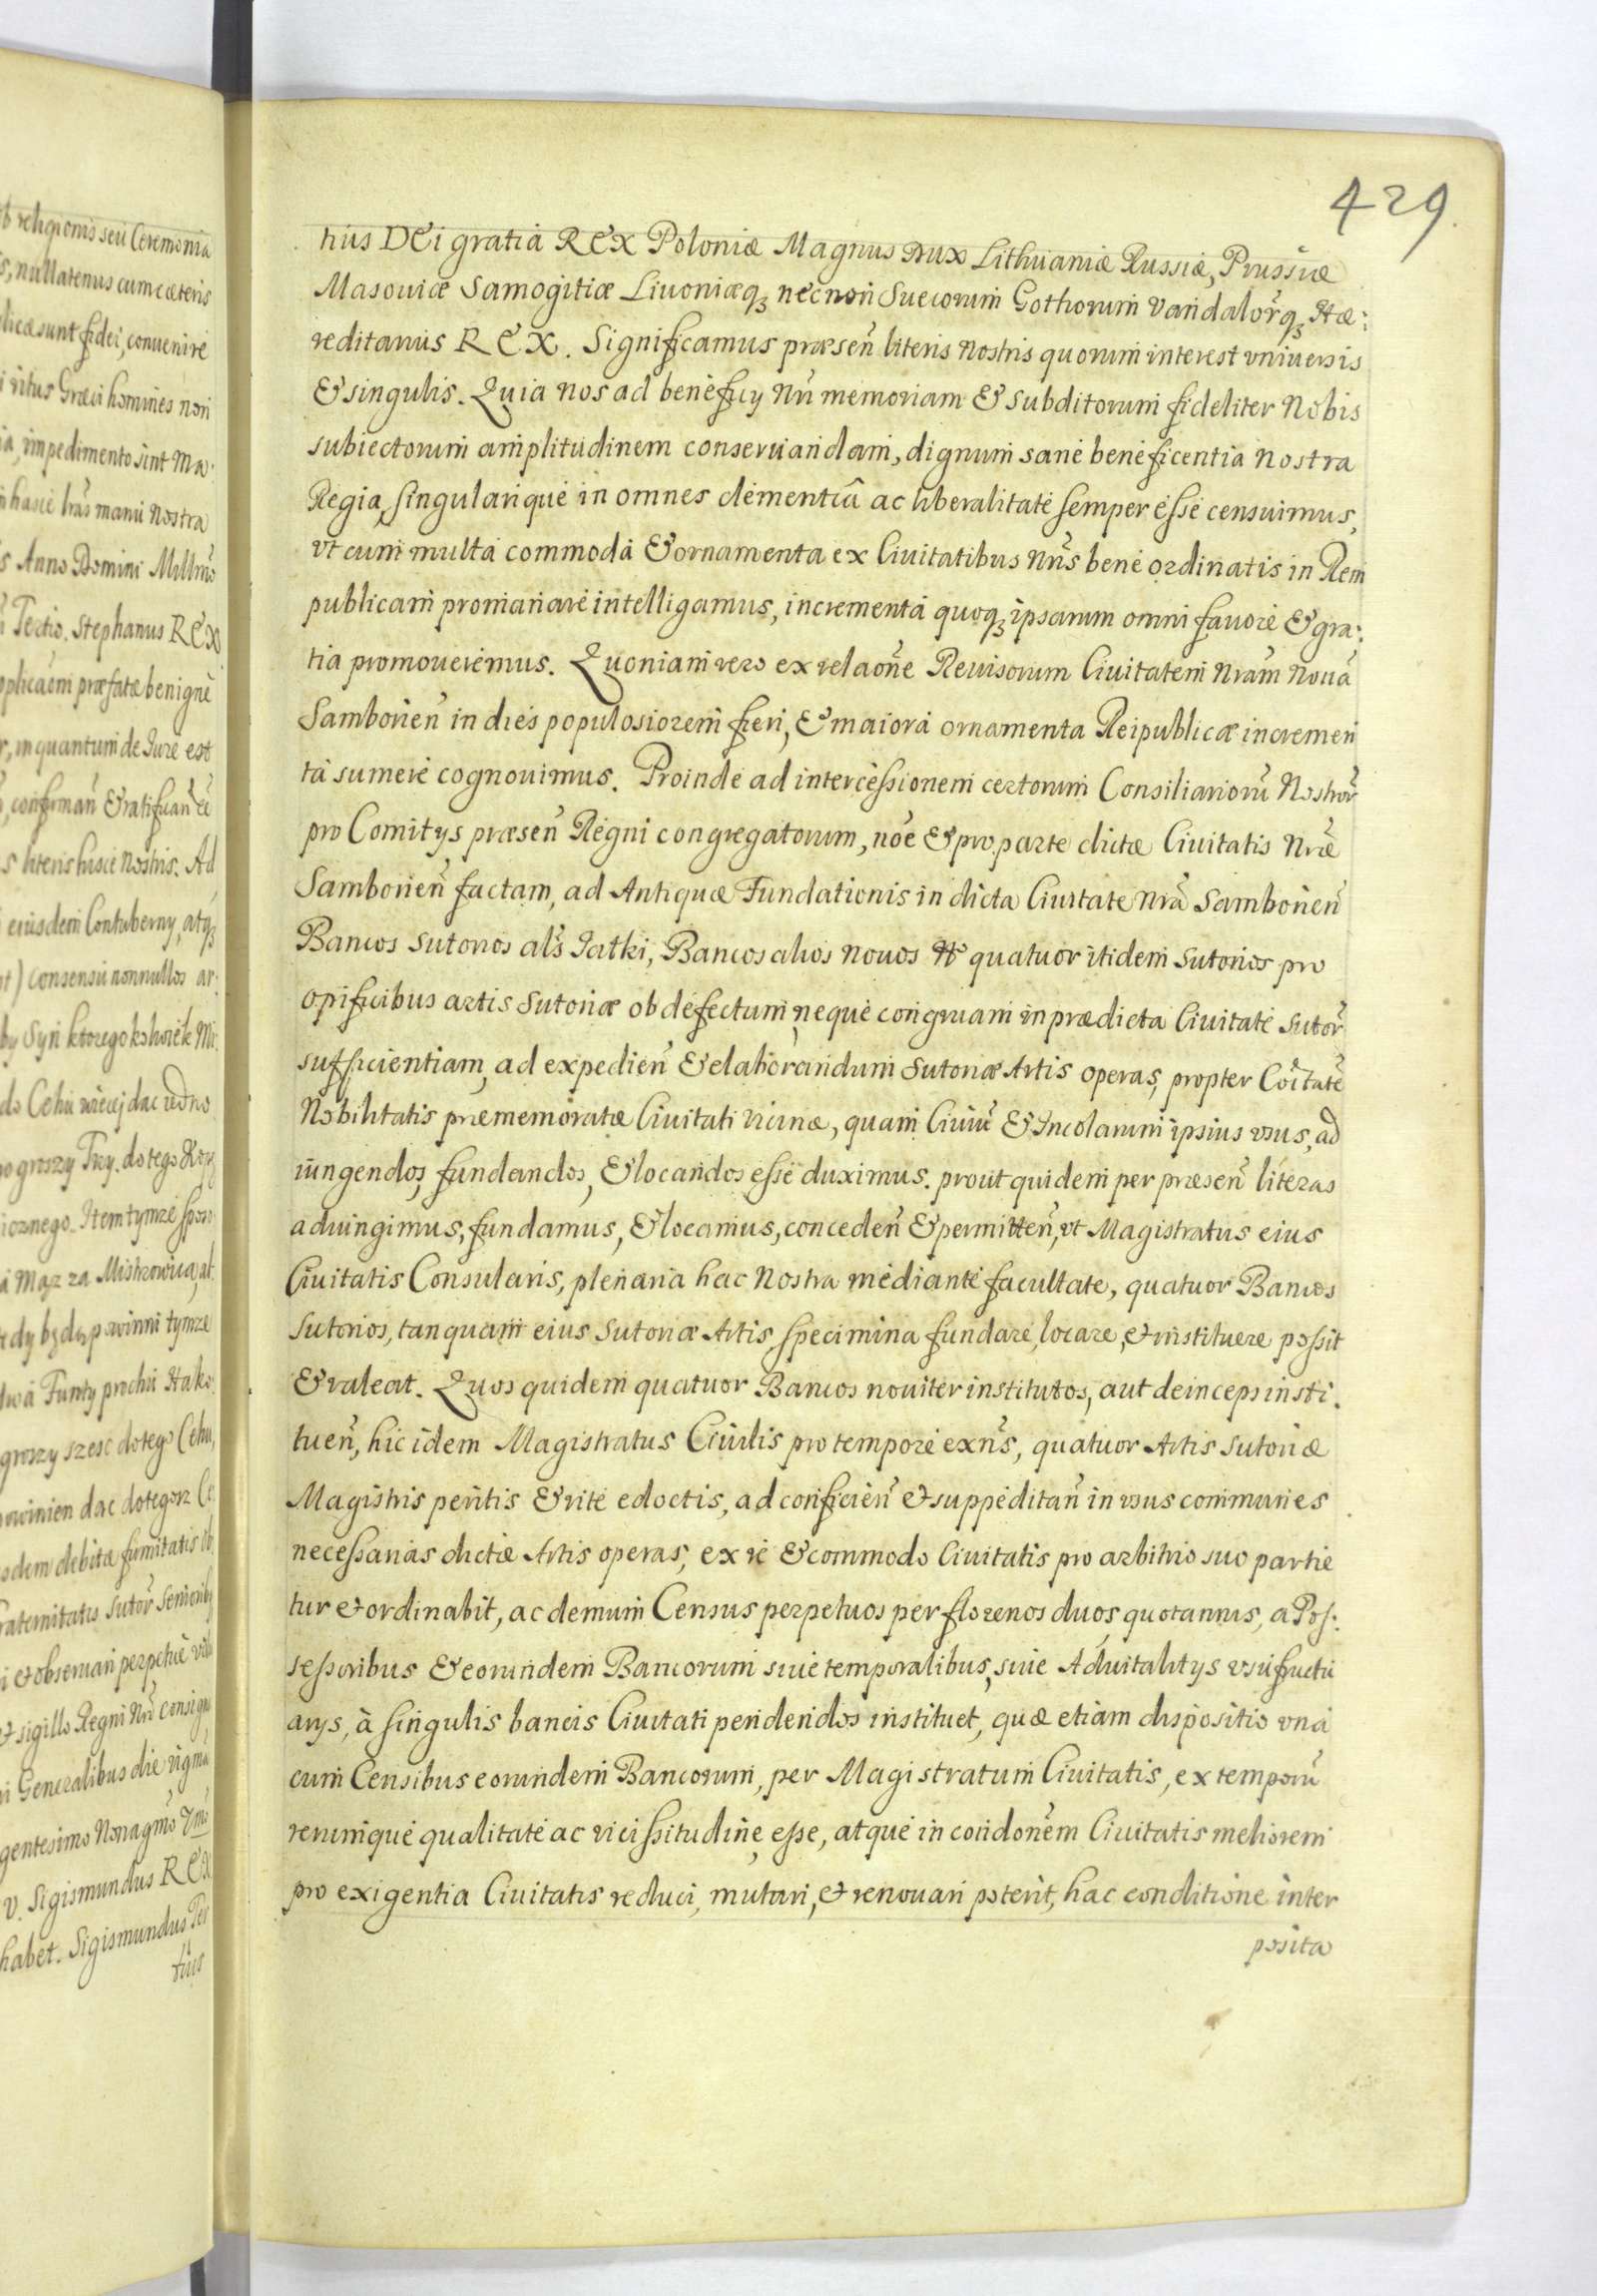 b religionis seu Ceremonia
s, nullatenus cum cæteris
licæ sunt fidei, conuenire
i ritus Græci homines non
ia, impedimento sint Ma:
hasce lras manu Nostra
s Anno Domini Millmo
Tertio. Stephanus REX
pplicaom præfatæ benigne
r, in quantum de Iure est
, confirman̄ & ratifican̄
s literis hisce Nostris. Ad
eiusdem Contuberny, atq3
t) Consensu nonnullos ar:
by Syn ktoregokolwiek Mi:
do Cehu wiecej dac iedno
o groszy Trzy. do tego
icznego. Item tymze sposo
a Mąz za Mistrzowiną, al
tedy będą powinni tymze
dwa Funty prochu Hako:
groszy szesc do tego Cehu,
owinien dac do tegorz Ce
odem debitæ firmitatis
raternitatis Sutor̄ Seniorib3
i et obseruari perpetue
et sigillo Regni Nri consign
i Generalibus die vigma
gentesimo Nonagmo
v. Sigismundus REX
habet. Sigismundus Ter
tius
429
tius DEi gratia REX Poloniæ Magnus Dux Lithuaniæ Russiæ, Prussiæ
Masouiæ Samogitiæ Liuoniæq3 necnon Suecorum Gothorum Vandalor̄q3 Hæ:
reditarius REX. Significamus præsen̄ literis Nostris quorum interest vniuersis
& singulis. Quia nos ad beneficy Nri memoriam & subditorum fideliter Nobis
subiectorum amplitudinem conseruandam, dignum sane beneficentia Nostra
Regia, singularique in omnes clementiâ ac liberalitate semper esse censuimus,
vt cum multa commoda & ornamenta ex Ciuitatibus Nris bene ordinatis in Rem
publicam promanare intelligamus, incrementa quoq3 ipsarum omni fauore & gra:
tia promoueremus. Quoniam vero ex relaone Reuisorum Ciuitatem Nram Nouā
Samborien̄ in dies populosiorem fieri, & maiora ornamenta Reipublicæ incremen
ta sumere cognouimus. Proinde ad intercessionem certorum Consiliariorū Nostror̄
pro Comitys præsen̄ Regni congregatorum, noe & pro parte dictæ Ciuitatis Nræ
Samborien̄ factam, ad Antiquæ Fundationis in dicta Ciuitate Nra Samborien̄
Bancos Sutorios als Jatki, Bancos alios nouos N° quatuor itidem Sutorios pro
opificibus artis Sutoriæ ob defectum, neque congruam in prædicta Ciuitate Sutor̄
sufficientiam, ad expedien̄ & elaborandum Sutoriæ Artis operas, propter Coitatē
Nobilitatis præmemoratæ Ciuitati vicinæ, quam Ciuiū & Incolarum ipsius vsus, ad
iungendos, fundandos, & locandos esse duximus. prout quidem per præsen̄ literas
adiungimus, fundamus, & locamus, conceden̄ & permitten̄, vt Magistratus eius
Ciuitatis Consularis, plenaria hac Nostra mediante facultate, quatuor Bancos
Sutorios, tanquam eius Sutoriæ Artis specimina fundare, locare, et instituere possit
& valeat. Quos quidem quatuor Bancos nouiter institutos, aut deinceps insti:
tuen̄, hic idem Magistratus Ciuilis pro tempore exn̄s, quatuor Artis Sutoriæ
Magistris peritis & rite edoctis, ad conficien̄ et suppeditan̄ in vsus communes
necessarias dictæ Artis operas, ex re & commodo Ciuitatis pro arbitrio suo partie
tur et ordinabit, ac demum Census perpetuos per florenos duos, quotannis, a Pos:
sessoribus & eorundem Bancorum siue temporalibus, siue Aduitalitys vsufructu
arys, à singulis bancis Ciuitati pendendos instituet, quæ etiam dispositio vna
cum Censibus eorundem Bancorum, per Magistratum Ciuitatis, ex temporū
rerumque qualitate ac vicissitudine, esse, atque in condonem Ciuitatis meliorem
pro exigentia Ciuitatis reduci, mutari, et renouari poterit, hac conditione inter
posita